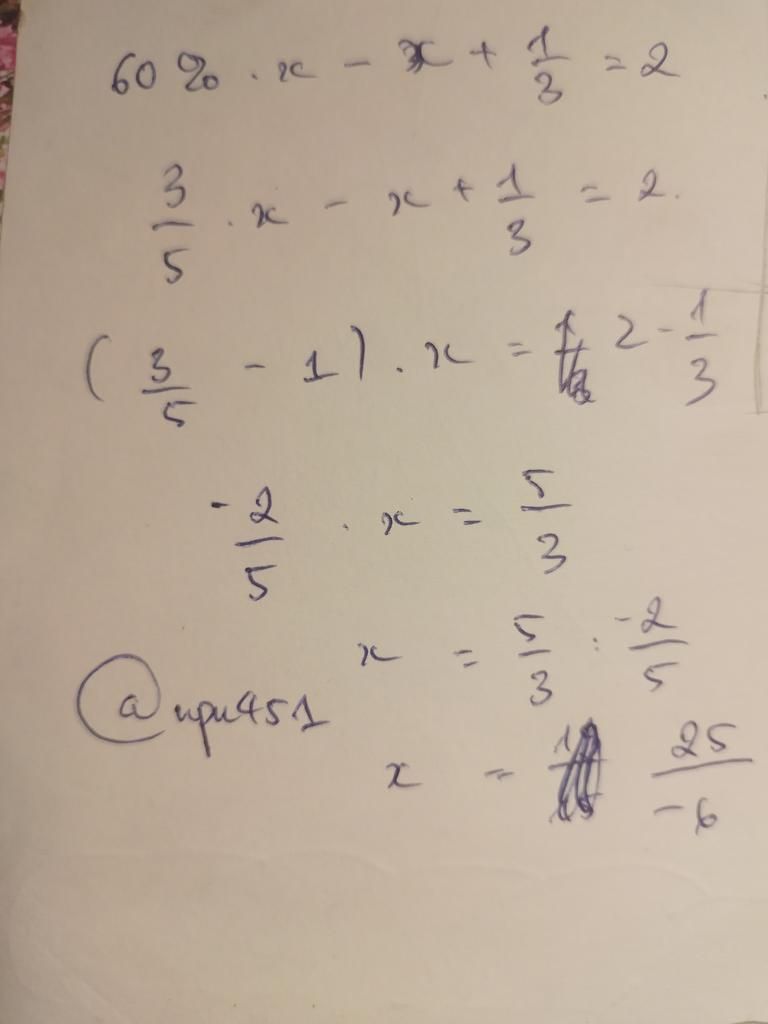 60% . x - x + 1/3 = 2
3/5 . x - x + 1/3 = 2.
(3/5 - 1) . x = 2 - 1/3
-2/5 . x = 5/3
x = 5/3 : -2/5
@upu451
x = 25/-6